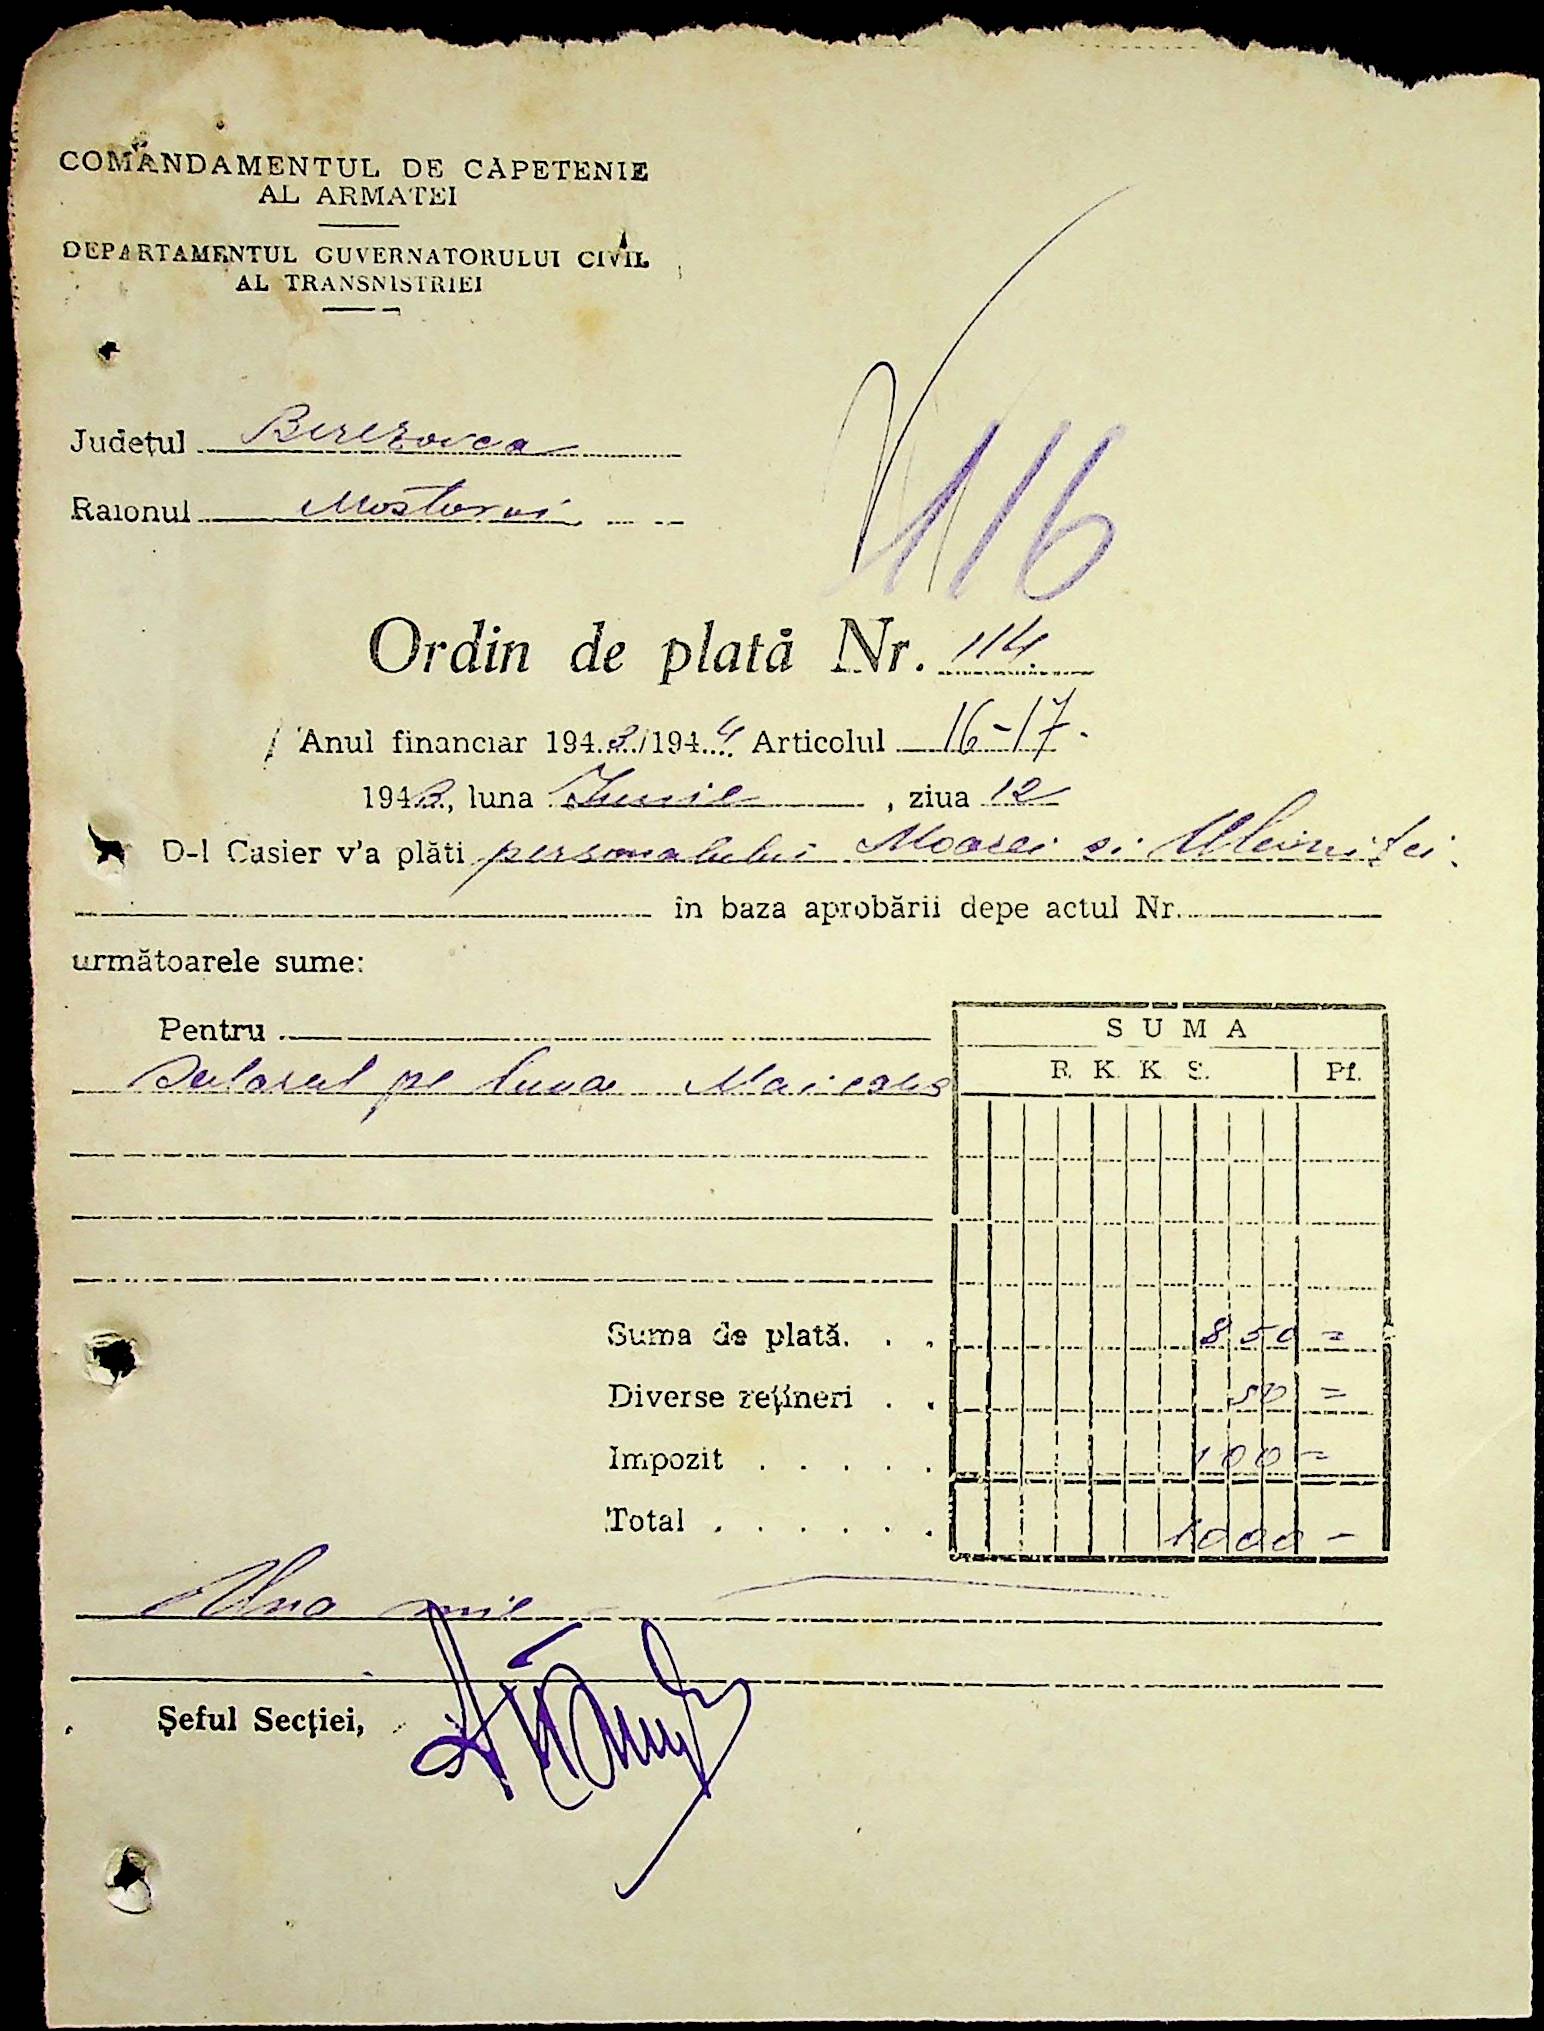 COMANDAMENTUL DE CAPETENIE
AL ARMATEI
DEPARTAMENTUL GUVERNATORULUI CIVIL
AL TRANSNISTRIEI
Județul Berezovca
Raionul Mostovoi
116
Ordin de plată Nr. 114
Anul financiar 1943/1944 Articolul 16-17.
1943, luna Iunie, ziua 12
D-l Casier v'a plăti personalului Moarei si Uleiniței.
în baza aprobării depe actul Nr.
următoarele sume:
Pentru
SUMA
R. K. K. S. Pf.
Salarul pe luna Mai 1943
Suma de plată. . . 850 =
Diverse rețineri . . 50 =
Impozit . . . . . 100 =
Total . . . . . . 1000 -
Una mie
Șeful Secției,